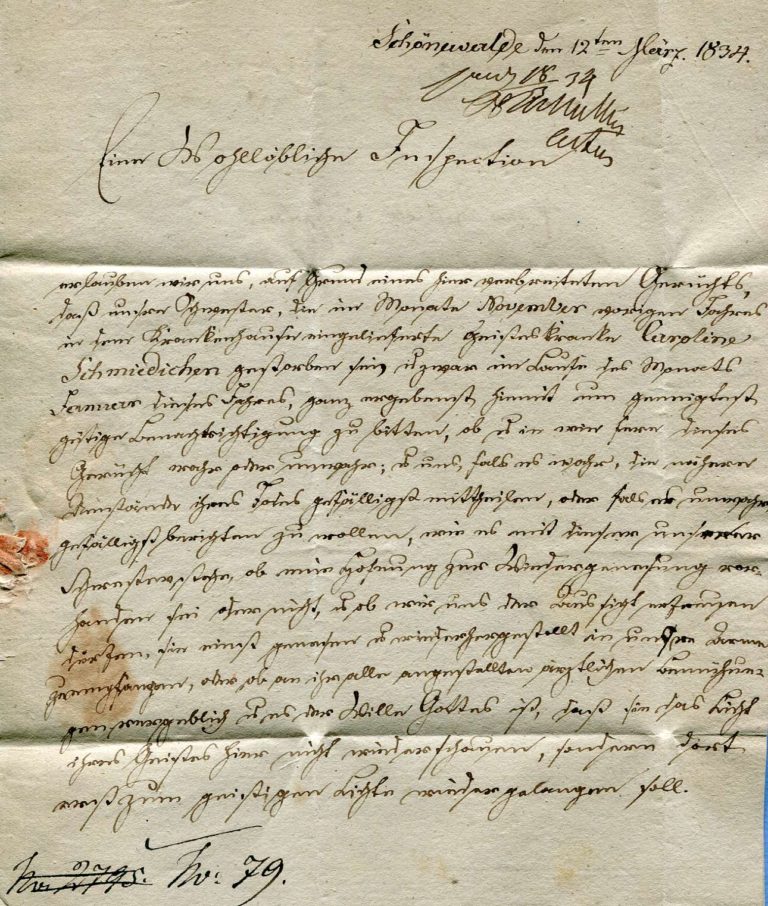 Schönewalde den 12ten März. 1834.
18-34
Eine Wohllöbliche Inspection
erlauben wir uns, auf Grund eines hier verbreiteten Gerüchts,
daß unsre Schwester, die im Monate November vorigen Jahres
in dem Krankenhause eingelieferte geisteskranke Caroline
Schmiedichen gestorben sei, u zwar im Laufe des Monats
Januar dieses Jahres, ganz ergebenst hiemit um geneigtest
gütige Benachrichtigung zu bitten, ob u in wie fern dieses
Gerücht wahr oder unwahr; u uns, falls es wahr, die nähern
Umstände ihres Todes gefälligst mittheilen, oder falls es unwahr
gefälligst berichten zu wollen, wie es mit dieser unserer
Schwester stehe, ob eine Hofnung zur Wiedergenesung vor-
handen sei oder nicht, u ob wir uns der Aussicht erfreuen
dürfen, sie einst genesen u wiederhergestellt in unsre Arme
zu empfangen, oder ob an ihr alle angestellten ärztlichen Bemühun-
gen vergeblich u es der Wille Gottes ist, daß sie das Licht
ihres Geistes hier nicht wieder schauen, sondern dort
erst zum geistigen Lichte wieder gelangen soll.
No: 79.